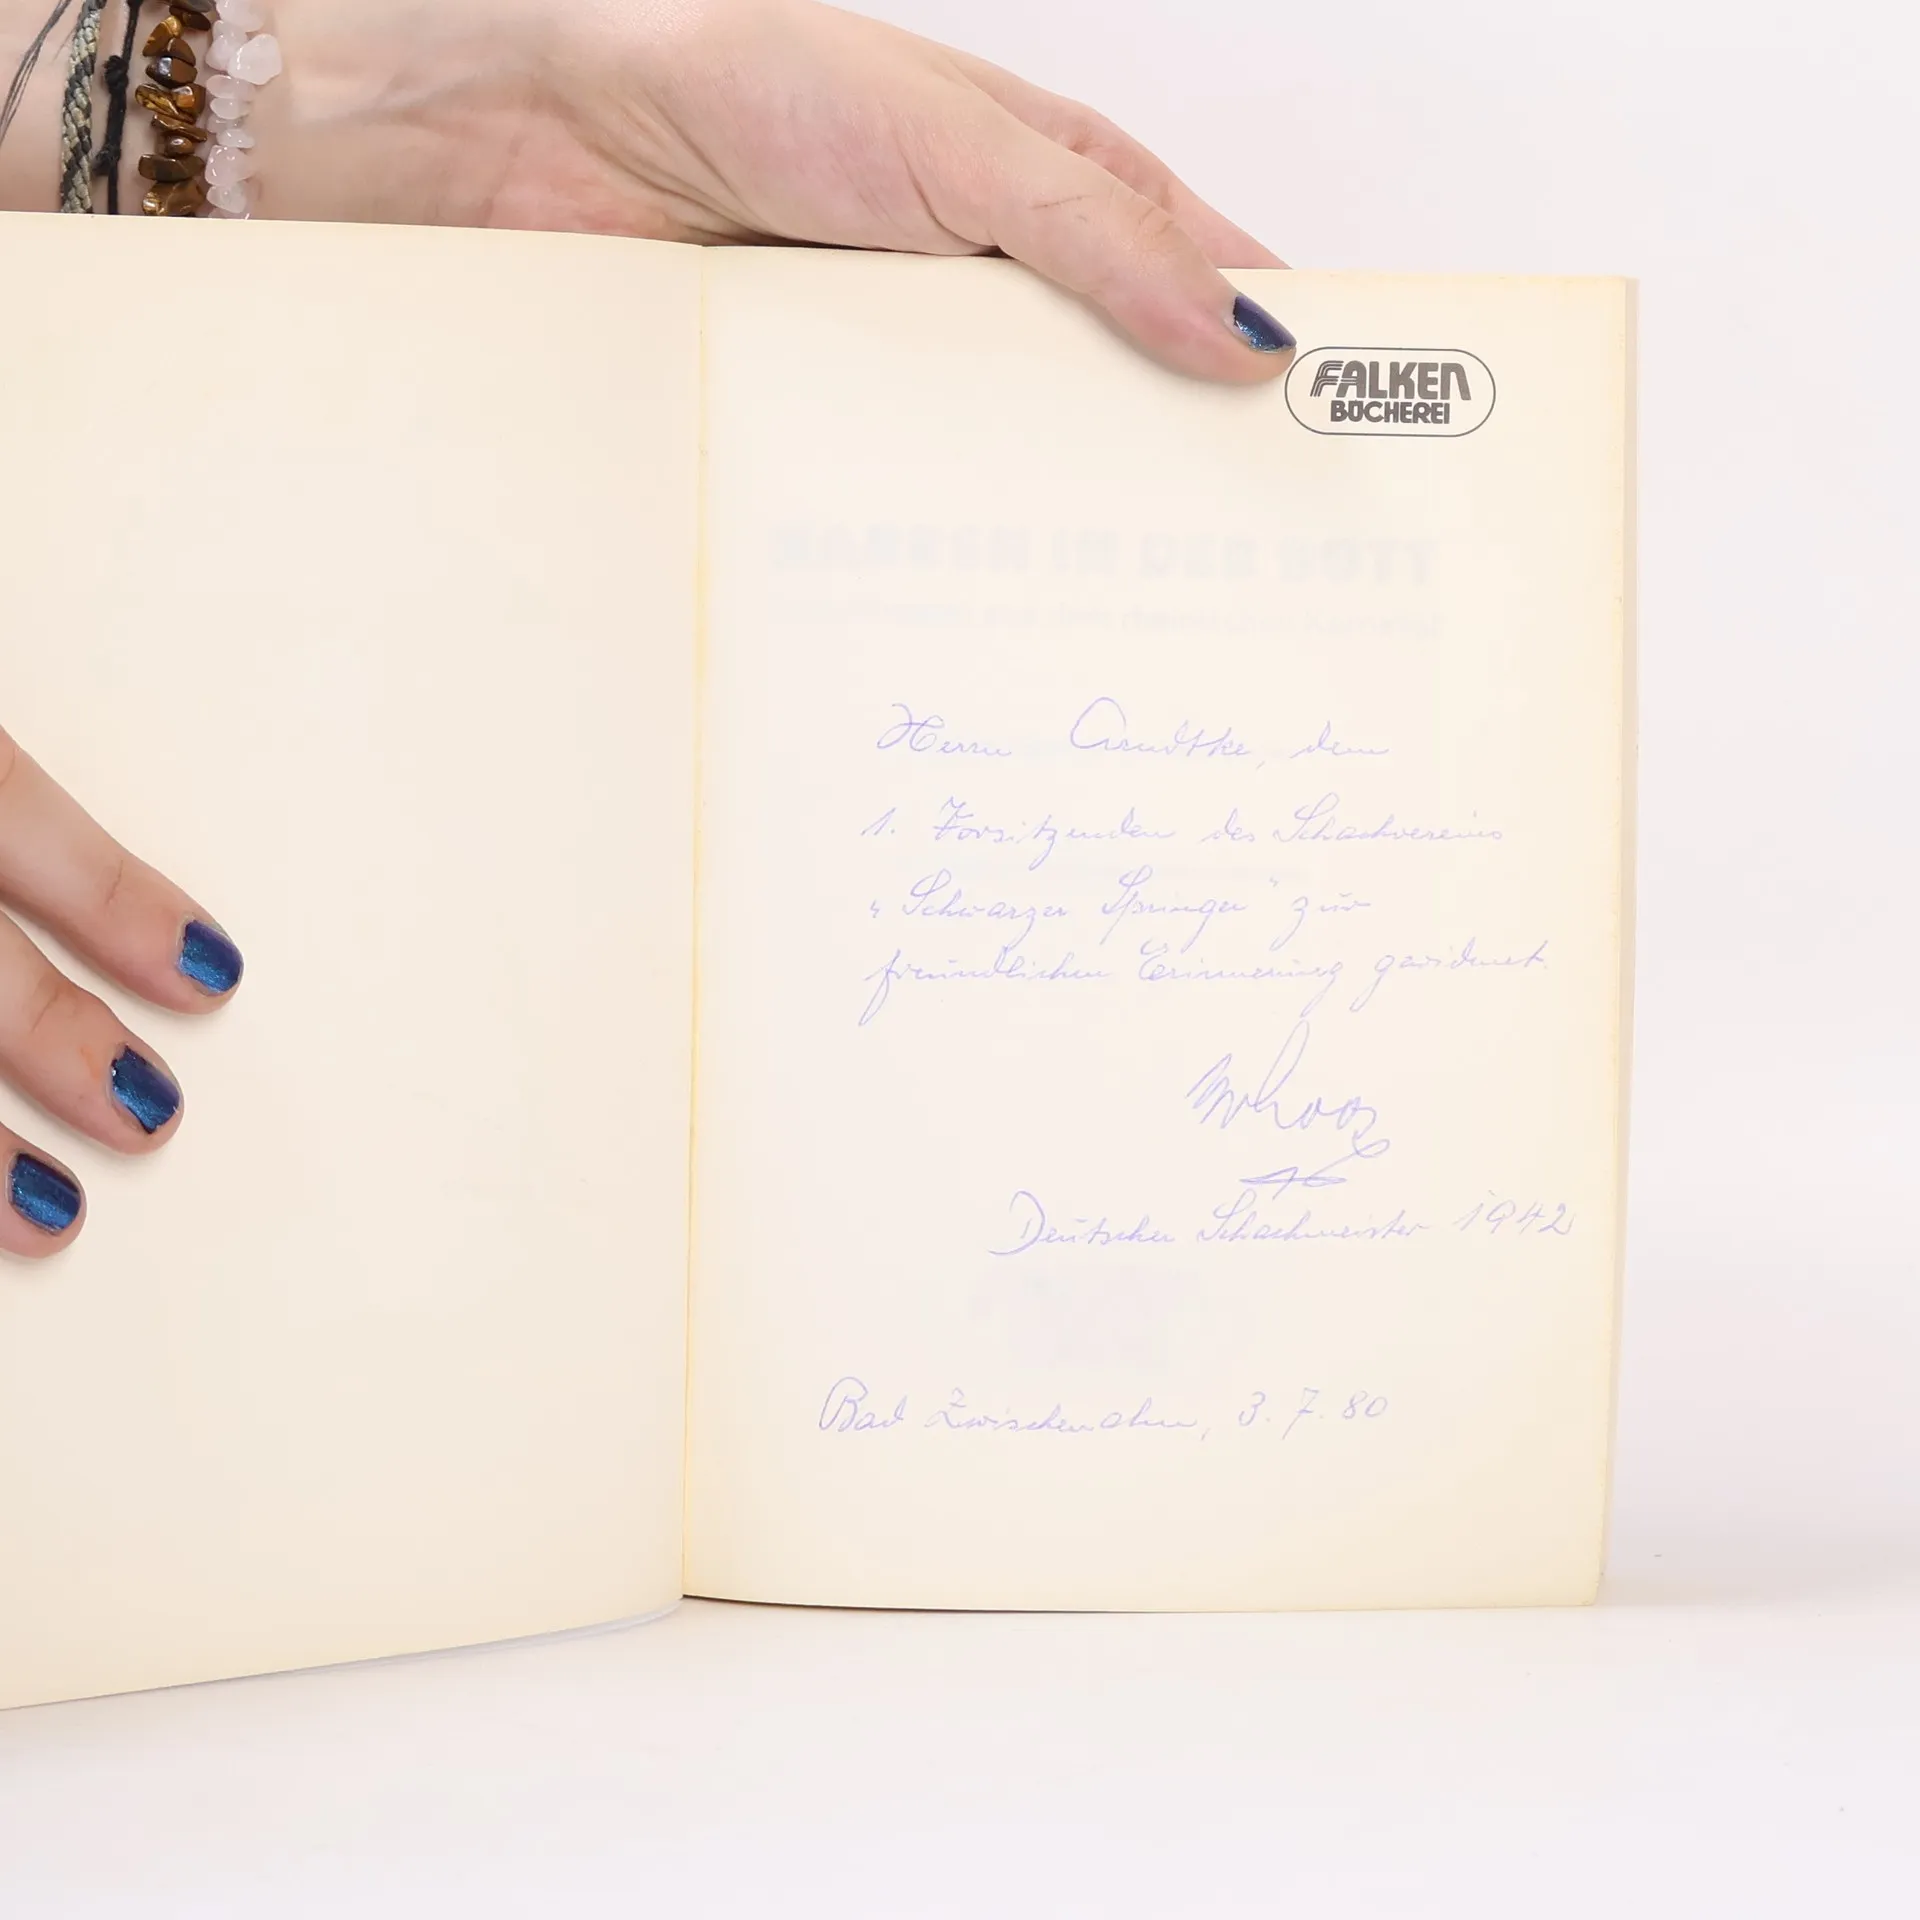 FALKEN
BÜCHEREI
Herrn Arndtke, dem
1. Vorsitzenden des Schachvereins
„Schwarzer Springer“ zur
freundlichen Erinnerung gewidmet.
Deutscher Schachmeister 1942
Bad Zwischenahn, 3.7.80